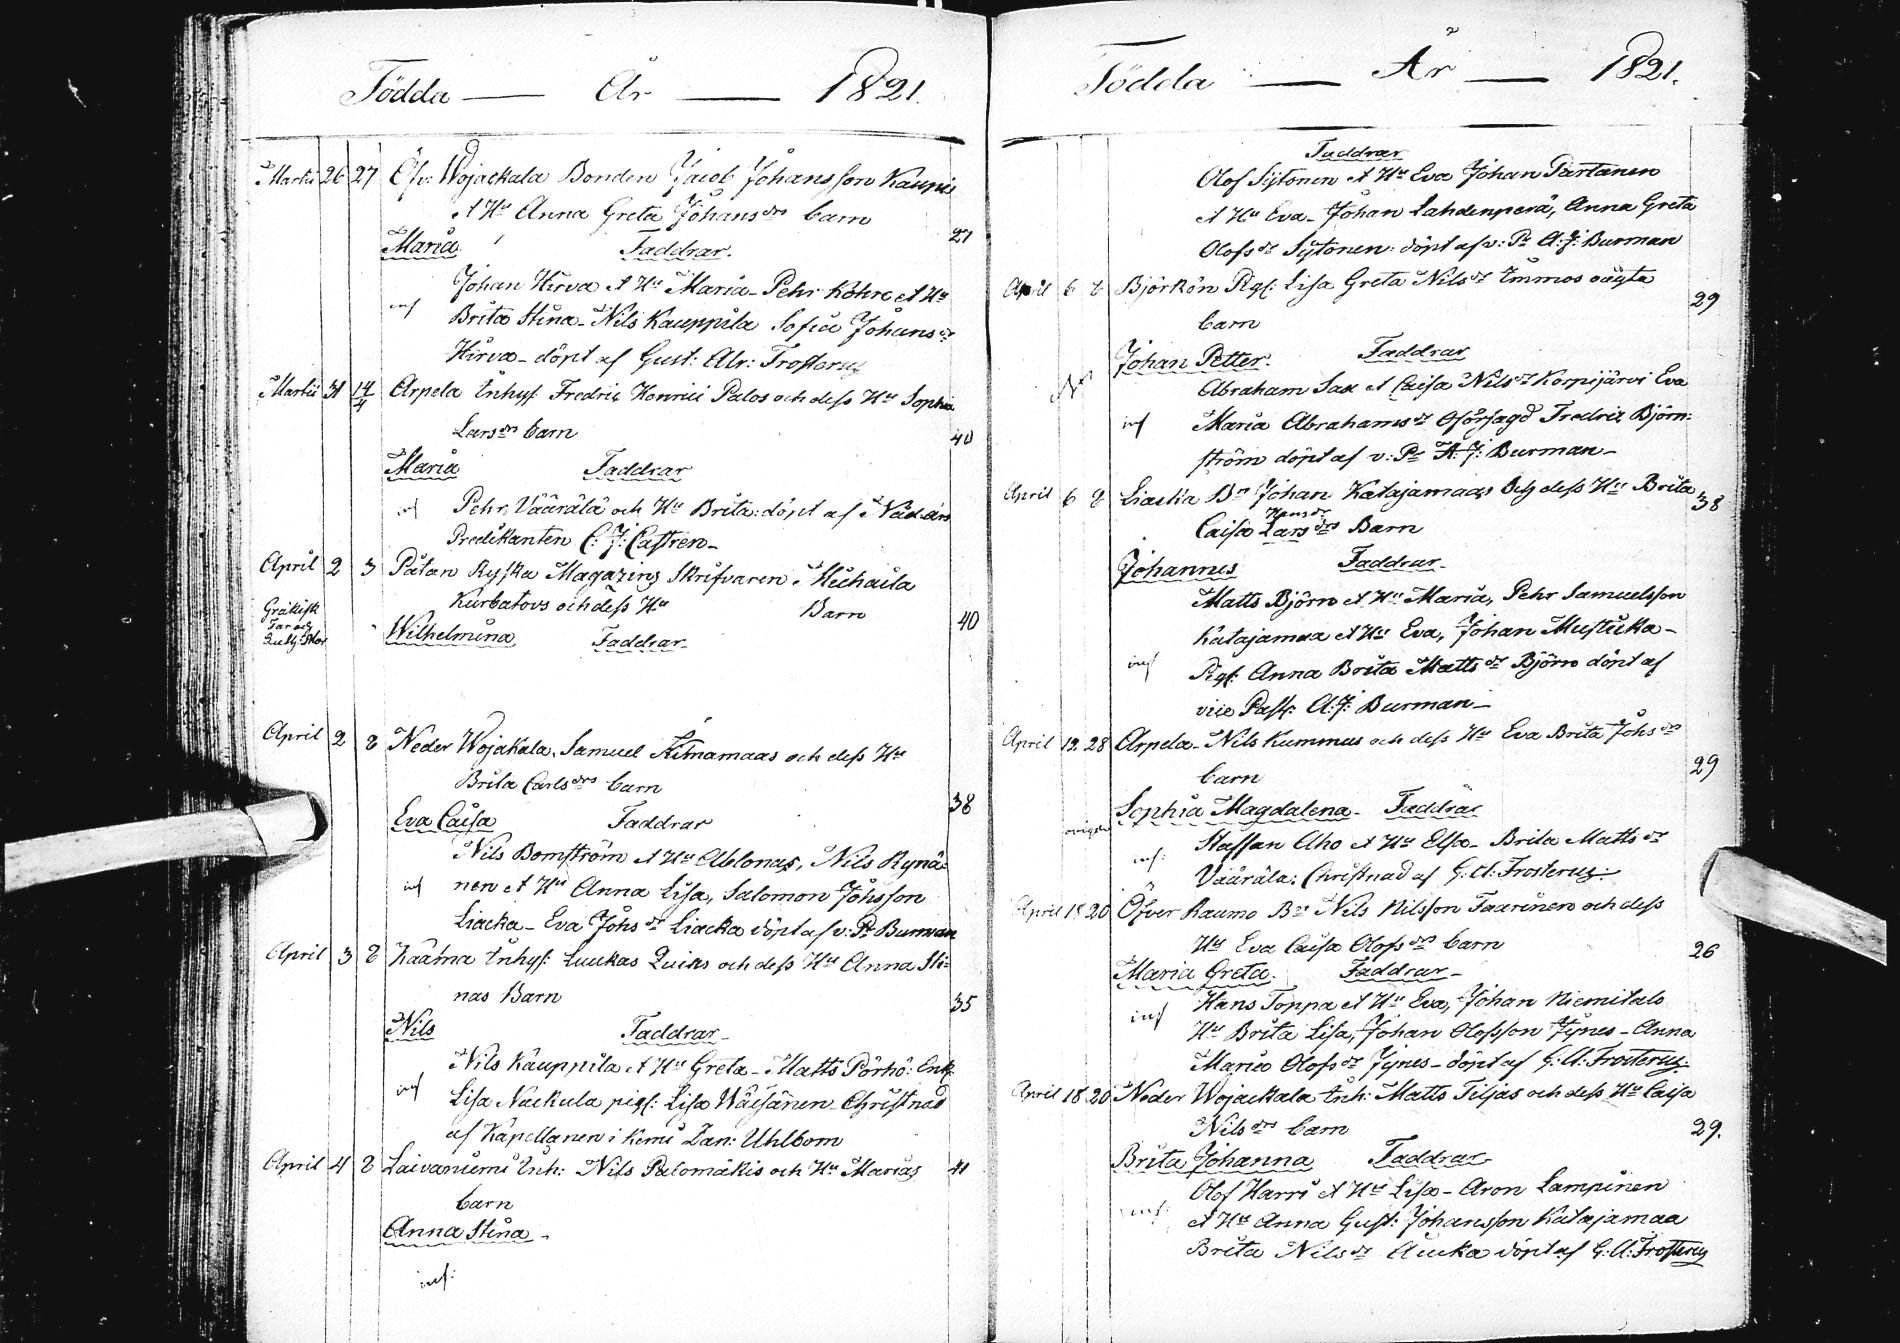 Födda — År — 1821.
Martii 26 27 Öfv: Wojackala Bonden Jacob Johansson Kaupis
et Hu Anna Greta Johansdrs barn 27
Maria Faddrar.
Johan Hirva et Hu Maria - Pehr Kohre et Hu
inf Brita Stina - Nils Kauppila Sofia Johansdr
Hirva - döpt af Gust: Abr: Frosterus
Martii 31 14/4 Arpela Inhys: Fredric Henrici Palos och dess Hu Sophia
Larsdrs barn 40
Maria Faddrar
inf Pehr Väärälä och Hu Brita: döpt af Nådårs
Predikanten C: J: Castren -
April 2 3 Pålan Ryska Magazins Skrifvaren Michaila
Kurbatovs och dess Hu Barn 40
Grekisk
Far och
Luth: Mor
Wilhelmina Faddrar -
April 2 8 Neder Wojakala Samuel Kitnamaas och dess Hu
Brita Carlsdrs barn 38
Eva Caisa Faddrar
Nils Bomström et Hu Ablonas, Nils Rynä=
inf nen et Hu Anna Lisa, Salomon Johsson
Liacka - Eva Johsdr Liacka döpt af v: Pr Burman
April 3 8 Kaakna Inhys: Luukas Quicks och dess Hu Anna Sti=
nas Barn 35
Nils Faddrar -
Nils Kauppila et Hu Greta - Matts Pörhö: Enk:
inf Lisa Nackula pig: Lisa Wäisänen - Christnad
af Kapellanen i Kemi Zan: Uhlbom
April 4 8 Laivaniemi Inh: Nils Palomäkis och Hu Marias 41
barn
Anna Stina -
inf:
Födda — År — 1821.
Faddrar
Olof Sytonen et Hu Eva Johan Partanen
et Hu Eva - Johan Lahdenperä, Anna Greta
Olofsdr Sytonen: döpt af v: Pr A: J: Burman
April 6 8 Björkön Pig: Lisa Greta Nilsdr Immos oägta 29
barn
Johan Petter. Faddrar
Abraham Sax et Caisa Nilsdr Korpijärvi Eva
inf Maria Abrahamsdr Oförsagd Fredric Björn:
ström döpt af v: Pr A: J: Burman -
April 6 8 Liacka Bn Johan Katajamaas Och dess Hu Brita 38
Hansdr
Caisa Larsdrs Barn
Johannes Faddrar -
Matts Björn et Hu Maria, Pehr Samuelsson
Katajamaa et Hu Eva, Johan Mustuka -
inf Pig: Anna Brita Mattsdr Björn döpt af
vice Past: A: J: Burman -
April 12 28 Arpela - Nils Kummus och dess Hu Eva Brita Johsdrs
barn 29
Sophia Magdalena - Faddrar
Staffan Aho et Hu Elsa - Brita Mattsdr
inf: Väärälä: Christnad af G: A: Frosterus -
April 18 20 Öfver Raumo Bn Nils Nilsson Taarinen och dess
Hu Eva Caisa Olofsdrs barn 26
Maria Greta. Faddrar -
inf Hans Toppa et Hu Eva, Johan Niemitalo
Hu Brita Lisa, Johan Olofsson Jynes - Anna
Maria Olofsdr Jynes - döpt af G: A: Frosterus -
April 18 20 Neder Wojackala Inh: Matts Tiljas och dess Hu Caisa
Nilsdrs barn 29.
Brita Johanna Faddrar
Olof Harri et Hu Lisa - Aron Lampinen
inf: et Hu Anna Gust: Johansson Katajamaa
Brita Nilsdr döpt af G: A: Frosterus